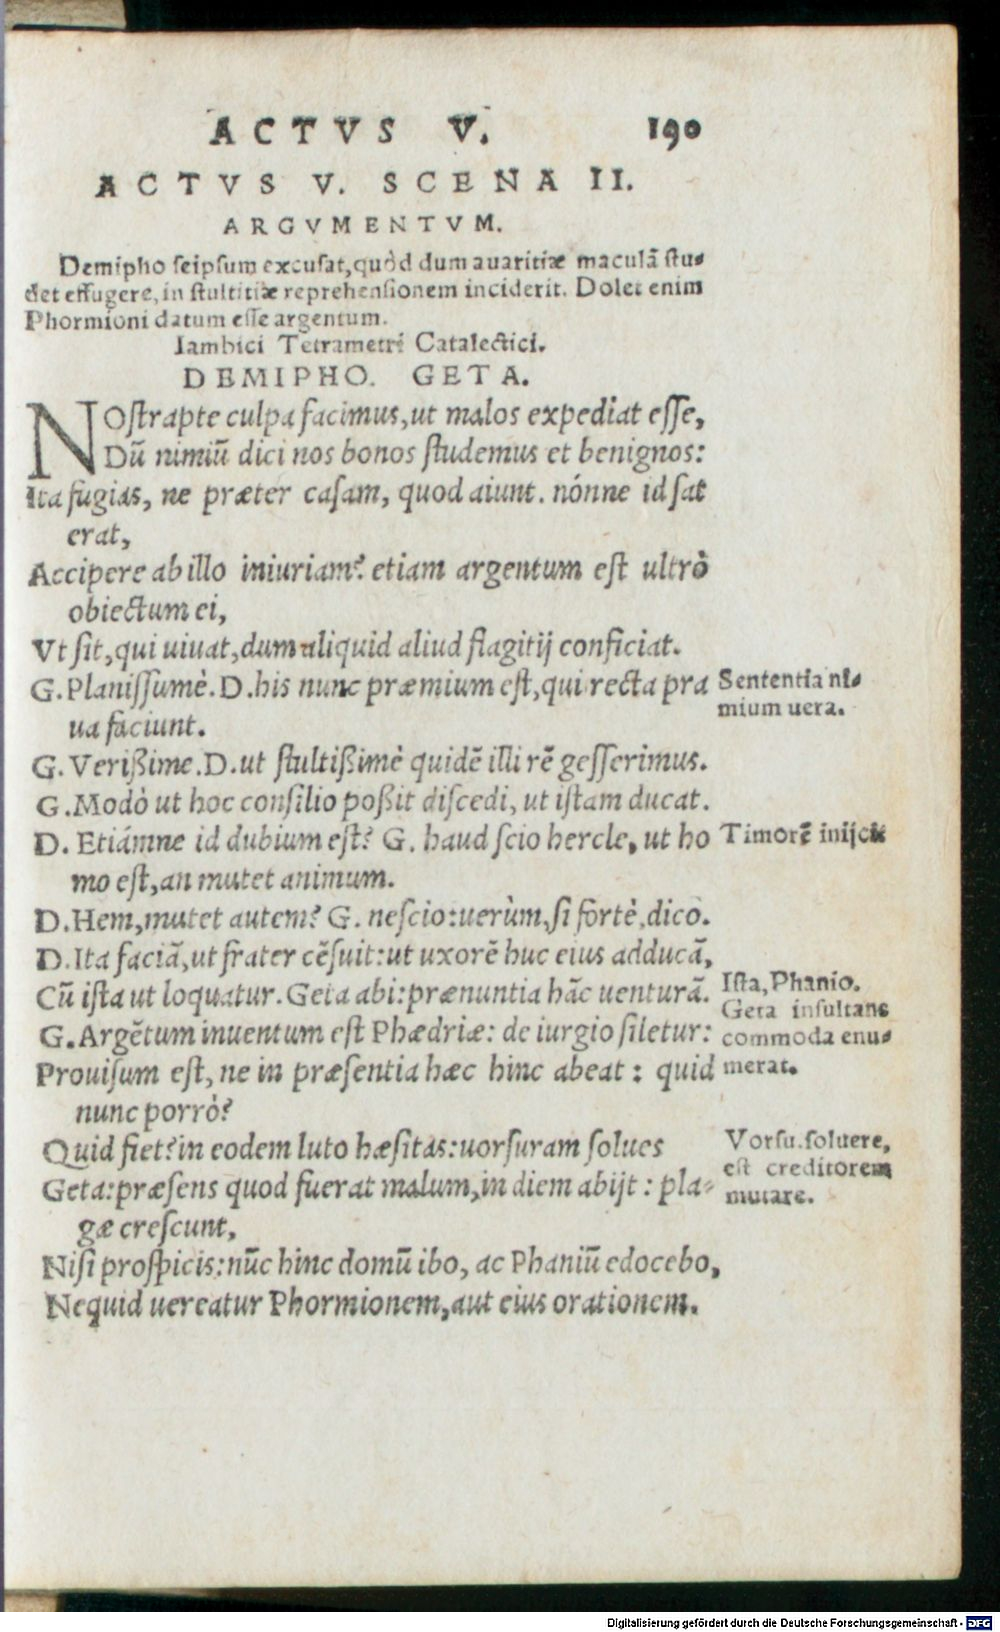 ACTVS V. 190
ACTVS V. SCENA II.
ARGVMENTVM.
Demipho seipsum excusat, quòd dum auaritiæ maculã stu-
det effugere, in stultitiæ reprehensionem inciderit. Dolet enim
Phormioni datum esse argentum.
Iambici Tetrametri Catalectici.
DEMIPHO. GETA.
NOstrapte culpa facimus, ut malos expediat esse,
Dũ nimiũ dici nos bonos studemus et benignos:
Ita fugias, ne præter casam, quod aiunt. nónne id sat
erat,
Accipere ab illo iniuriam? etiam argentum est ultrò
obiectum ei,
Vt sit, qui uiuat, dum aliquid aliud flagitij conficiat.
G. Planissumè. D. his nunc præmium est, qui recta pra
ua faciunt.
Sententia ni-
mium uera.
G. Verißime. D. ut stultißimè quidẽ illi rẽ gesserimus.
G. Modò ut hoc consilio poßit discedi, ut istam ducat.
D. Etiámne id dubium est? G. haud scio hercle, ut ho
mo est, an mutet animum.
Timorẽ inijcit
D. Hem, mutet autem? G. nescio: uerùm, si fortè, dico.
D. Ita faciã, ut frater cẽsuit: ut uxorẽ huc eius adducã,
Cũ ista ut loquatur. Geta abi: prænuntia hãc uenturã.
Ista, Phanio.
G. Argẽtum inuentum est Phædriæ: de iurgio siletur:
Prouisum est, ne in præsentia hæc hinc abeat: quid
nunc porrò?
Geta insultans
commoda enu-
merat.
Quid fiet? in eodem luto hæsitas: uorsuram solues
Geta: præsens quod fuerat malum, in diem abijt: pla-
gæ crescunt,
Vorsu. soluere,
est creditorem
mutare.
Nisi prospicis: nũc hinc domũ ibo, ac Phaniũ edocebo,
Nequid uereatur Phormionem, aut eius orationem.
Digitalisierung gefördert durch die Deutsche Forschungsgemeinschaft - DFG